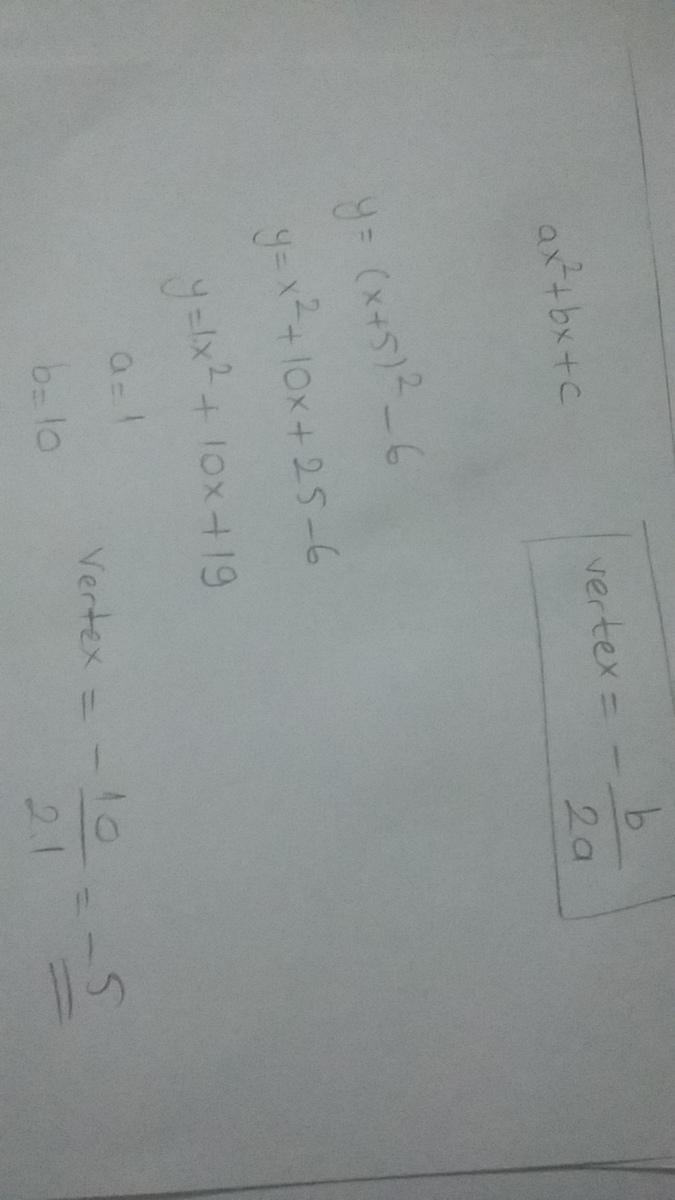 ax² + bx + c
vertex = - b/2a
y = (x+5)² - 6
y = x² + 10x + 25 - 6
y = 1x² + 10x + 19
a = 1
b = 10
Vertex = - 10/2.1 = -5